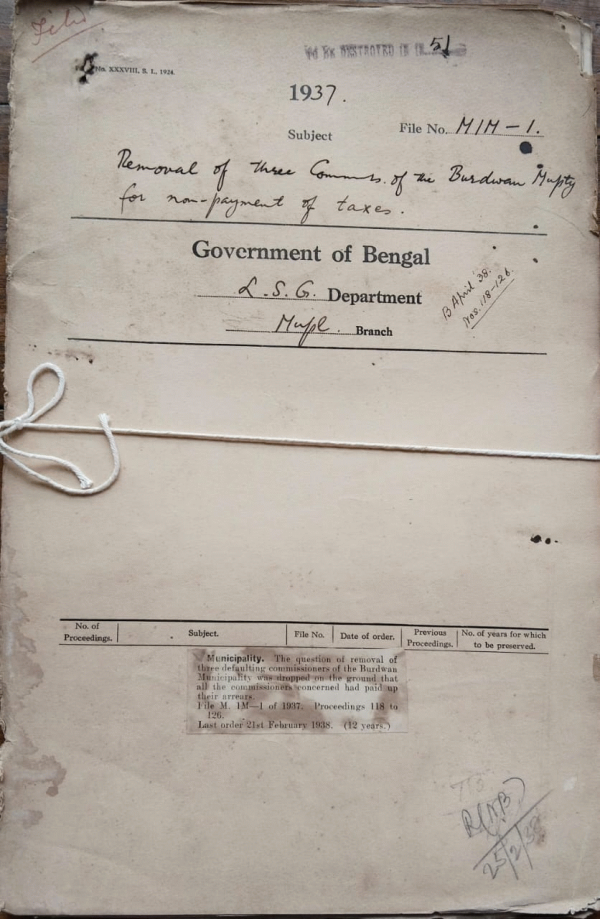 Filed
No. XXXVIII, S. I., 1924.
To be DESTROYED IN 51
1937.
Subject
File No. M1M-1.
Removal of three Commrs. of the Burdwan Mupty
for non-payment of taxes.
Government of Bengal
L.S.G. Department
Mupl. Branch
B April 38.
Nos. 118-126.
No. of Proceedings.
Subject.
File No.
Date of order.
Previous Proceedings.
No. of years for which to be preserved.
Municipality. The question of removal of
three defaulting commissioners of the Burdwan
Municipality was dropped on the ground that
all the commissioners concerned had paid up
their arrears.
File M. 1M—1 of 1937. Proceedings 118 to
126.
Last order 21st February 1938. (12 years.)
25/2/38